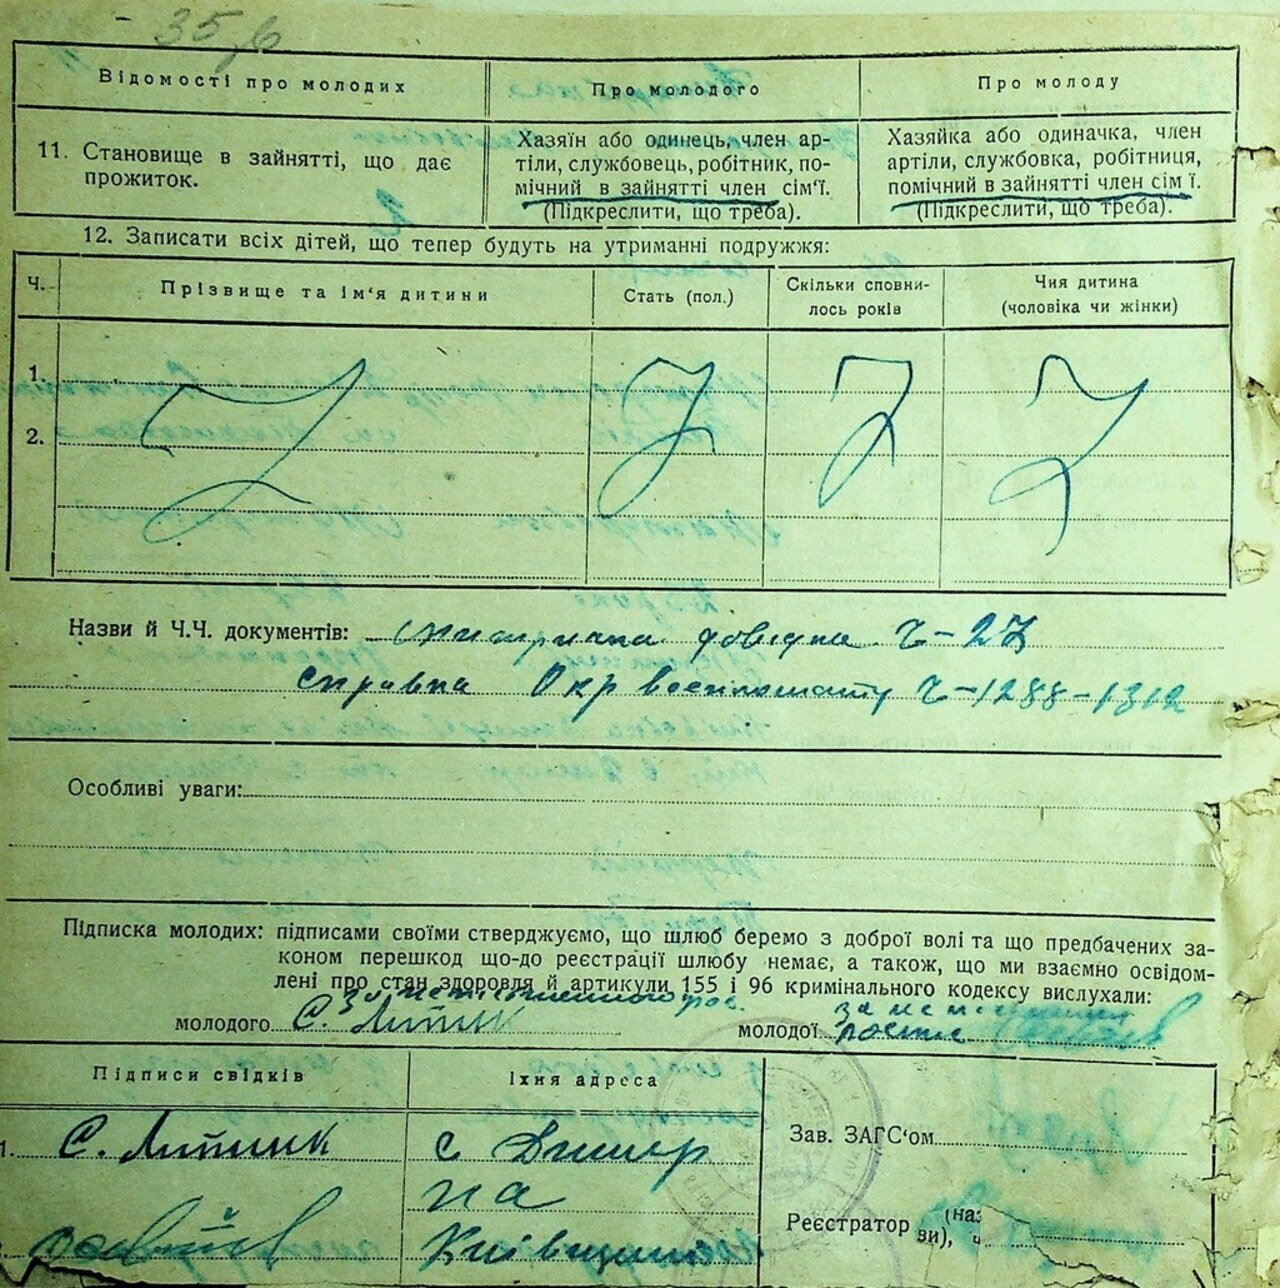 35
Відомості про молодих
Про молодого
Про молоду
11. Становище в зайнятті, що дає
прожиток.
Хазяїн або одинець, член ар-
тіли, службовець, робітник, по-
мічний в зайнятті член сім'ї.
(Підкреслити, що треба).
Хазяйка або одиначка, член
артіли, службовка, робітниця,
помічний в зайнятті член сім ї.
(Підкреслити, що треба).
12. Записати всіх дітей, що тепер будуть на утриманні подружжя:
Ч.
Прізвище та ім'я дитини
Стать (пол.)
Скільки сповни-
лось років
Чия дитина
(чоловіка чи жінки)
1.
2.
Назви й Ч.Ч. документів: довідка Ч-27
справка Окр военкомату Ч-1288-1312
Особливі уваги:
Підписка молодих: підписами своїми стверджуємо, що шлюб беремо з доброї волі та що предбачених за-
коном перешкод що-до реєстрації шлюбу немає, а також, що ми взаємно освідом-
лені про стан здоровля й артикули 155 і 96 кримінального кодексу вислухали:
молодого За неписьменного рос. С. Литик
молодої за неписьменну росте
Підписи свідків
Їхня адреса
1. С. Литик
с Димер
на
Київщині
Зав. ЗАГС'ом
Реєстратор
(наз
ви),